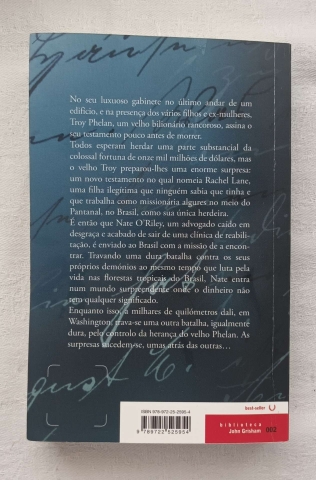 No seu luxuoso gabinete no último andar de um
edifício, e na presença dos vários filhos e ex-mulheres,
Troy Phelan, um velho bilionário rancoroso, assina o
seu testamento pouco antes de morrer.
Todos esperam herdar uma parte substancial da
colossal fortuna de onze mil milhões de dólares, mas
o velho Troy preparou-lhes uma enorme surpresa:
um novo testamento no qual nomeia Rachel Lane,
uma filha ilegítima que ninguém sabia que tinha e
que trabalha como missionária algures no meio do
Pantanal, no Brasil, como sua única herdeira.
É então que Nate O'Riley, um advogado caído em
desgraça e acabado de sair de uma clínica de reabili-
tação, é enviado ao Brasil com a missão de a encon-
trar. Travando uma dura batalha contra os seus
próprios demónios ao mesmo tempo que luta pela
vida nas florestas tropicais do Brasil, Nate entra
num mundo surpreendente onde o dinheiro não
tem qualquer significado.
Enquanto isso, a milhares de quilómetros dali, em
Washington, trava-se uma outra batalha, igualmente
dura, pelo controlo da herança do velho Phelan. As
surpresas sucedem-se, umas atrás das outras…
ISBN 978-972-25-2595-4
9789722525954
best-seller
biblioteca
John Grisham
002